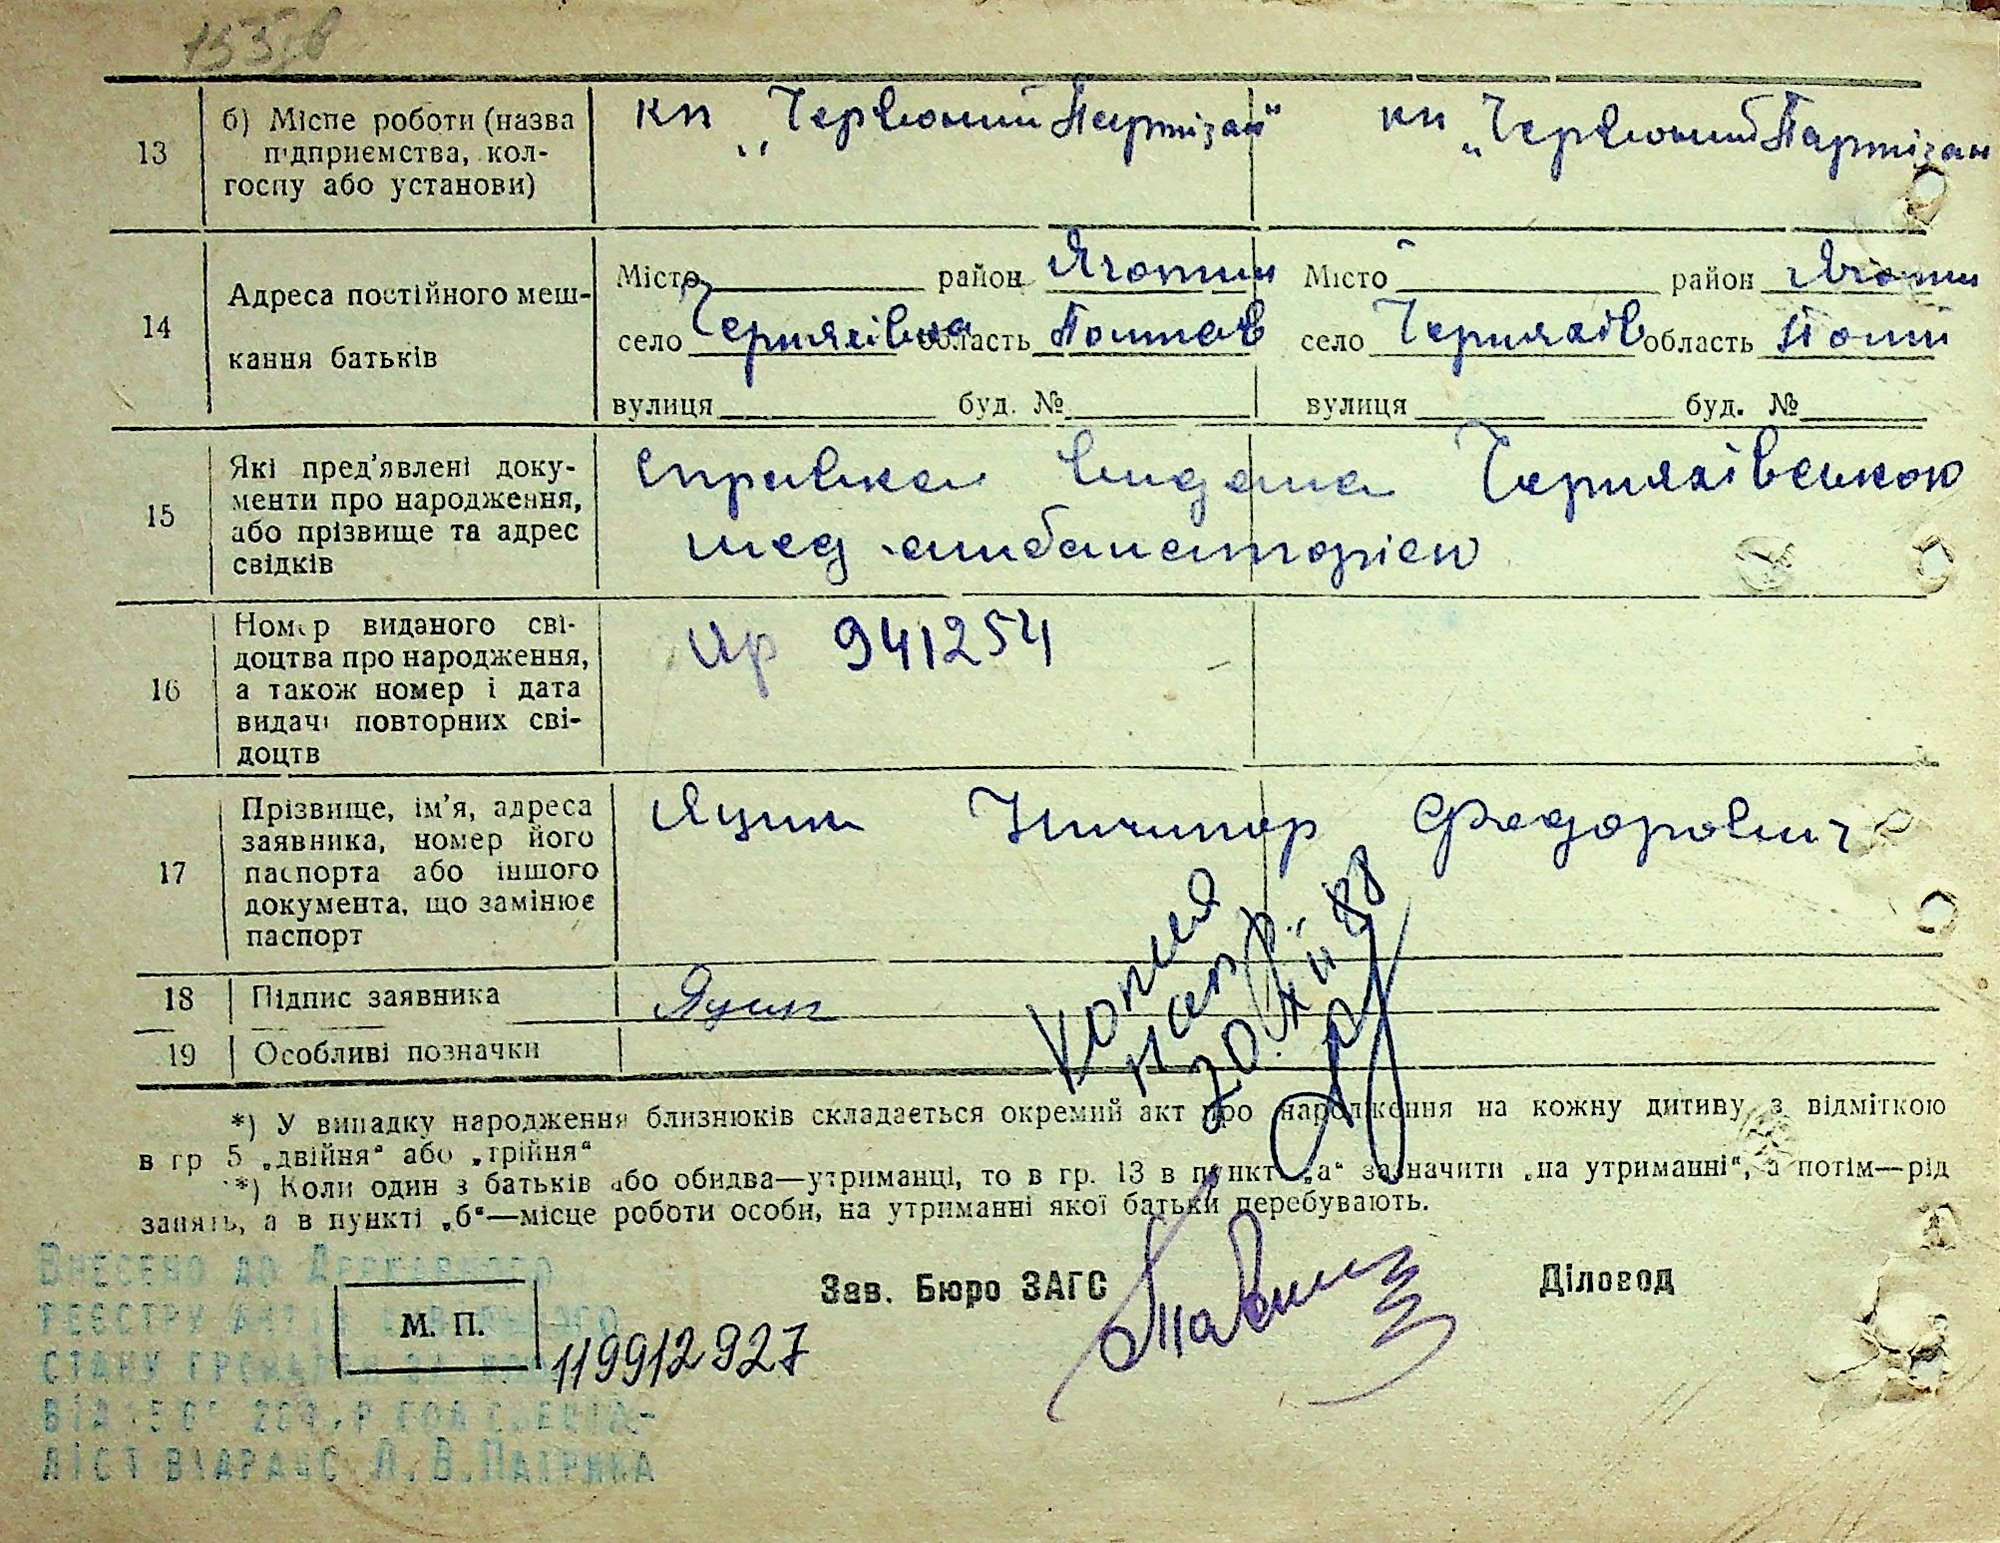 13 б) Місце роботи (назва
підприємства, кол-
госпу або установи)
кп „Червоний Партізан“ кп „Червоний Партізан
14 Адреса постійного меш-
кання батьків
Місто район Яготин Місто район Яготи
село Черняхівка область Полтав село Черняхів область Полт
вулиця буд. № вулиця буд. №
15 Які пред'явлені доку-
менти про народження,
або прізвище та адрес
свідків
справка видана Черняхівською
мед амбулаторією
16 Номер виданого сві-
доцтва про народження,
а також номер і дата
видачі повторних сві-
доцтв
941254
17 Прізвище, ім'я, адреса
заявника, номер його
паспорта або іншого
документа, що замінює
паспорт
Яцик Ничипор Федорович
18 Підпис заявника Яцик
19 Особливі позначки
копия
напр.
20.XII 88
*) У випадку народження близнюків складається окремий акт про народження на кожну дитину з відміткою
в гр 5 „двійня“ або „трійня“
*) Коли один з батьків або обидва—утриманці, то в гр. 13 в пункті „а“ зазначити „на утриманні“, а потім—рід
занять, а в пункті „б“—місце роботи особи, на утриманні якої батьки перебувають.
Внесено до Державного
реєстру актів
стану громадян
М. П.
119912927
Зав. Бюро ЗАГС Діловод